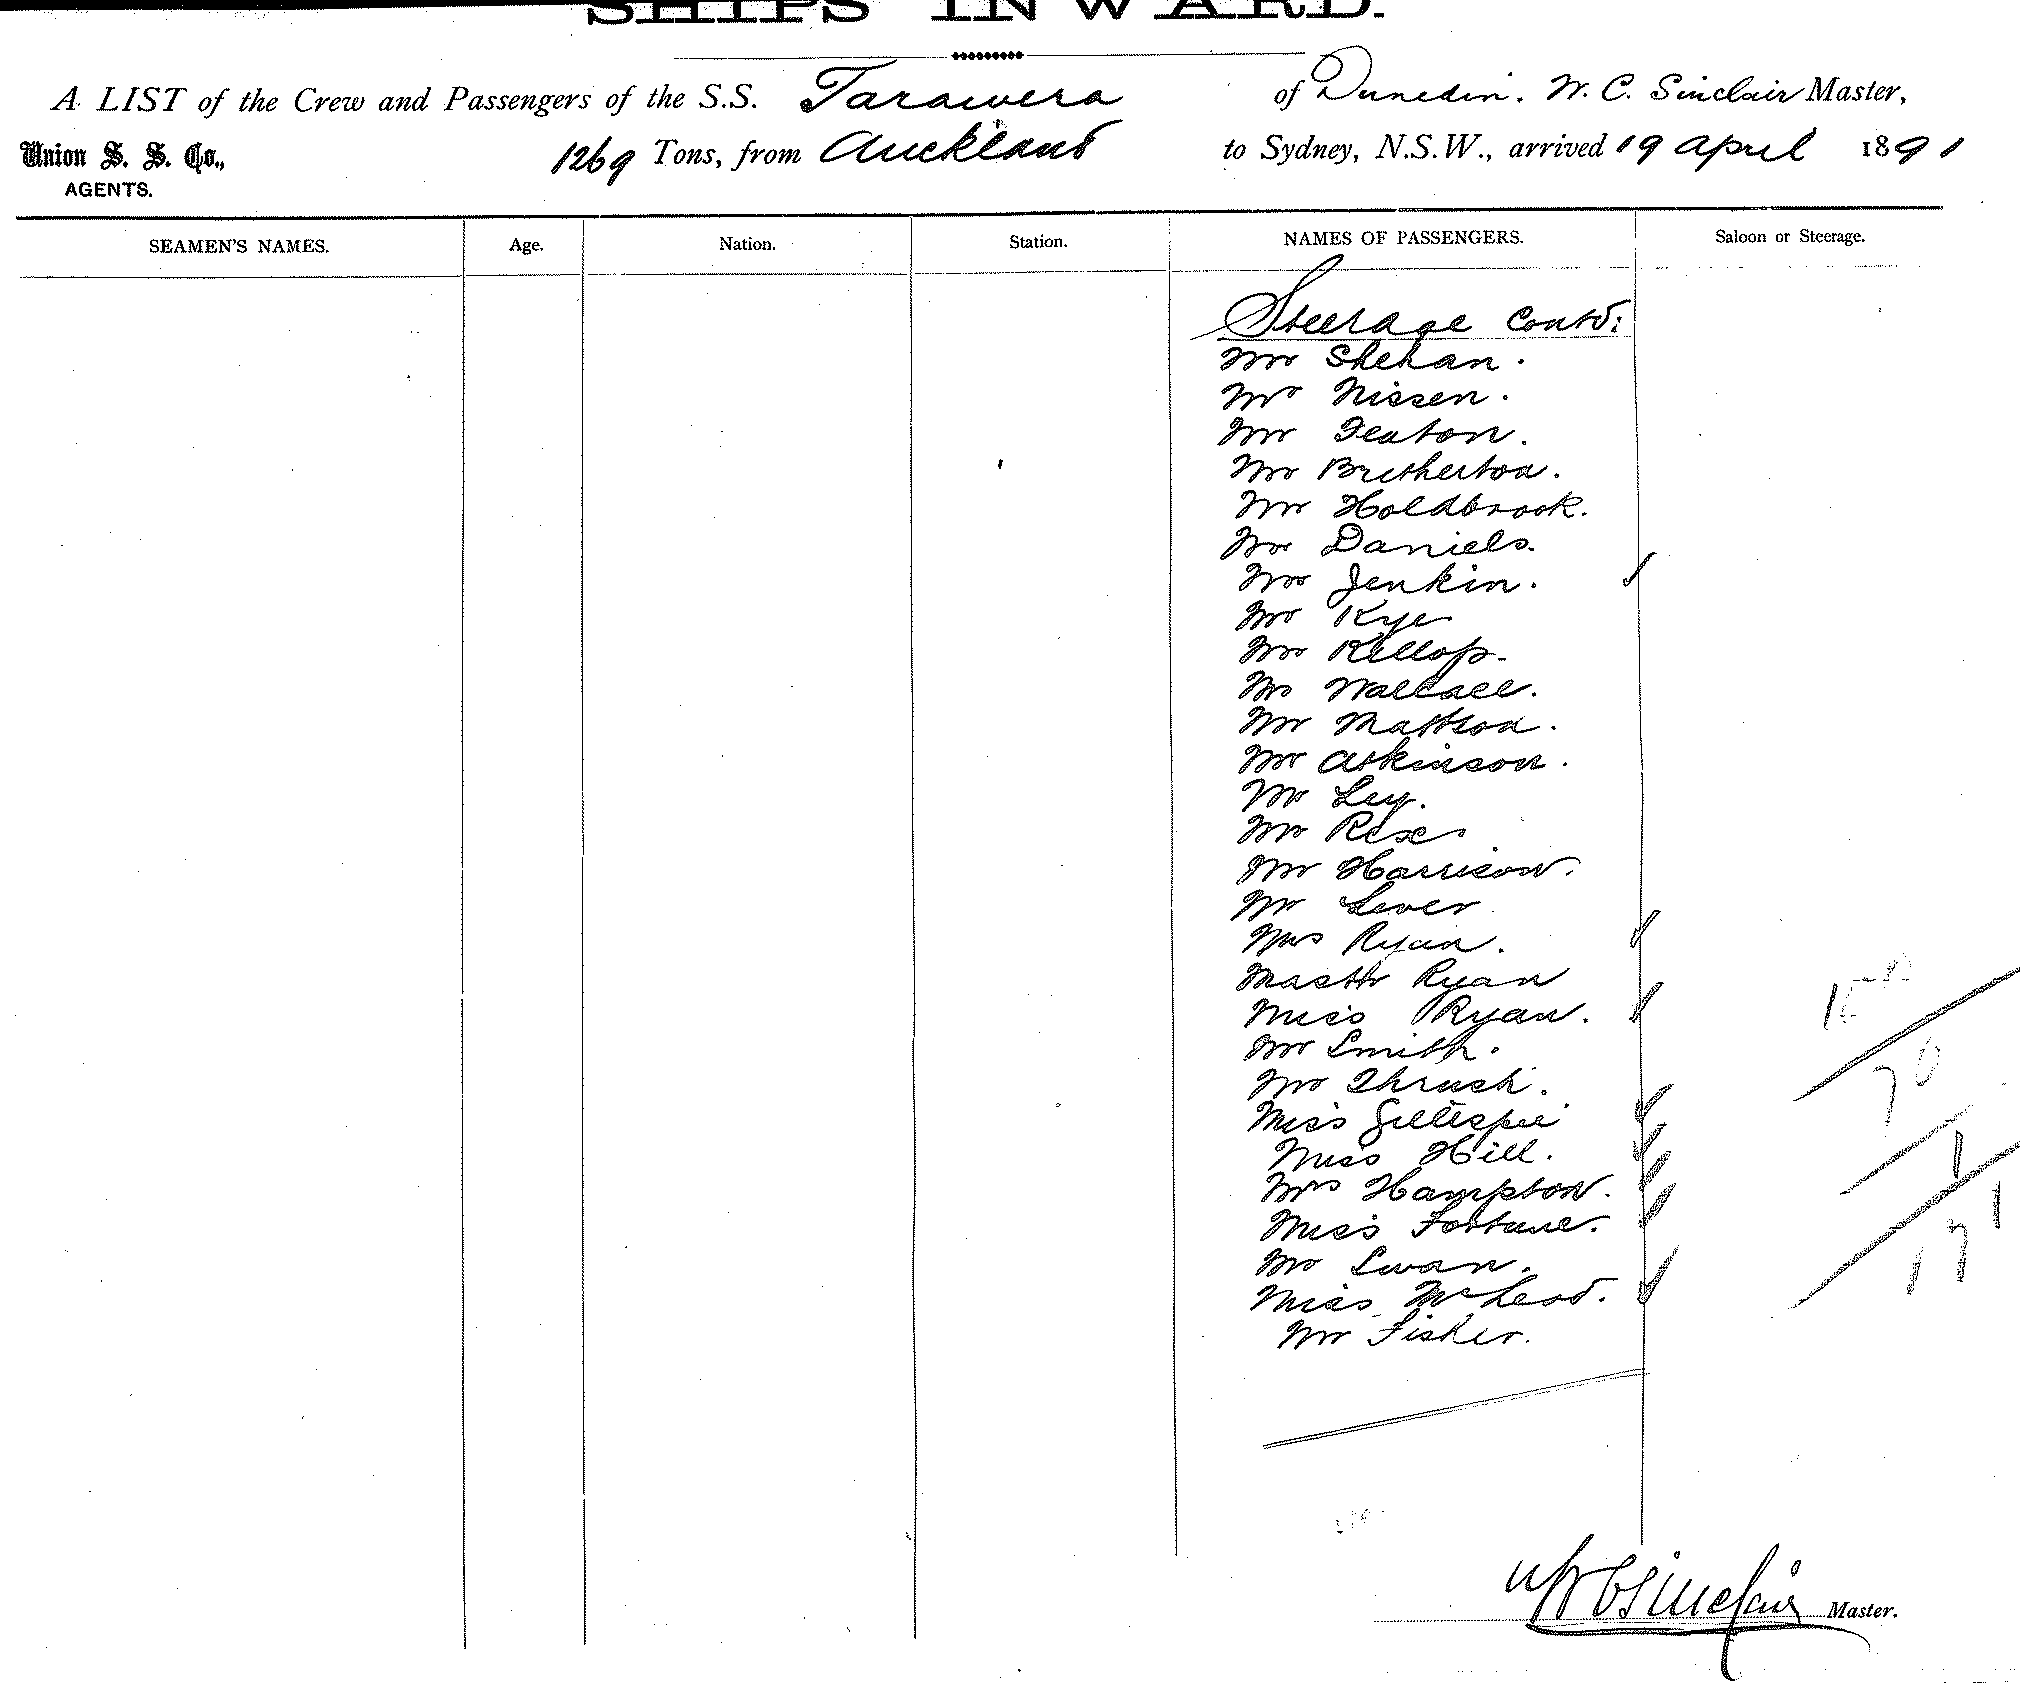 SHIPS INWARD.
A LIST of the Crew and Passengers of the S.S. Tarawera of Dunedin. W. C. Sinclair Master,
Union S. S. Co., 1269 Tons, from Auckland to Sydney, N.S.W., arrived 19 April 1891
AGENTS.
SEAMEN'S NAMES. Age. Nation. Station. NAMES OF PASSENGERS. Saloon or Steerage.
Steerage Contd:
Mr Shehan.
Mr Nissen.
Mr Featon.
Mr Bretherton.
Mr Holdbrook.
Mr Daniels.
Mr Jenkin.
Mr Kye
Mr Killop.
Mr Wallace.
Mr Mattson.
Mr Atkinson.
Mr Ley.
Mr Rix.
Mr Harrison.
Mr Lever
Mrs Ryan.
Mastr Ryan
Miss Ryan.
Mr Smith.
Mr Thrush.
Miss Gillespie
Miss Hill.
Mrs Hampton.
Miss Fortune.
Mr Swan.
Miss McLeod.
Mr Fisher.
70
1
171
W C Sinclair Master.